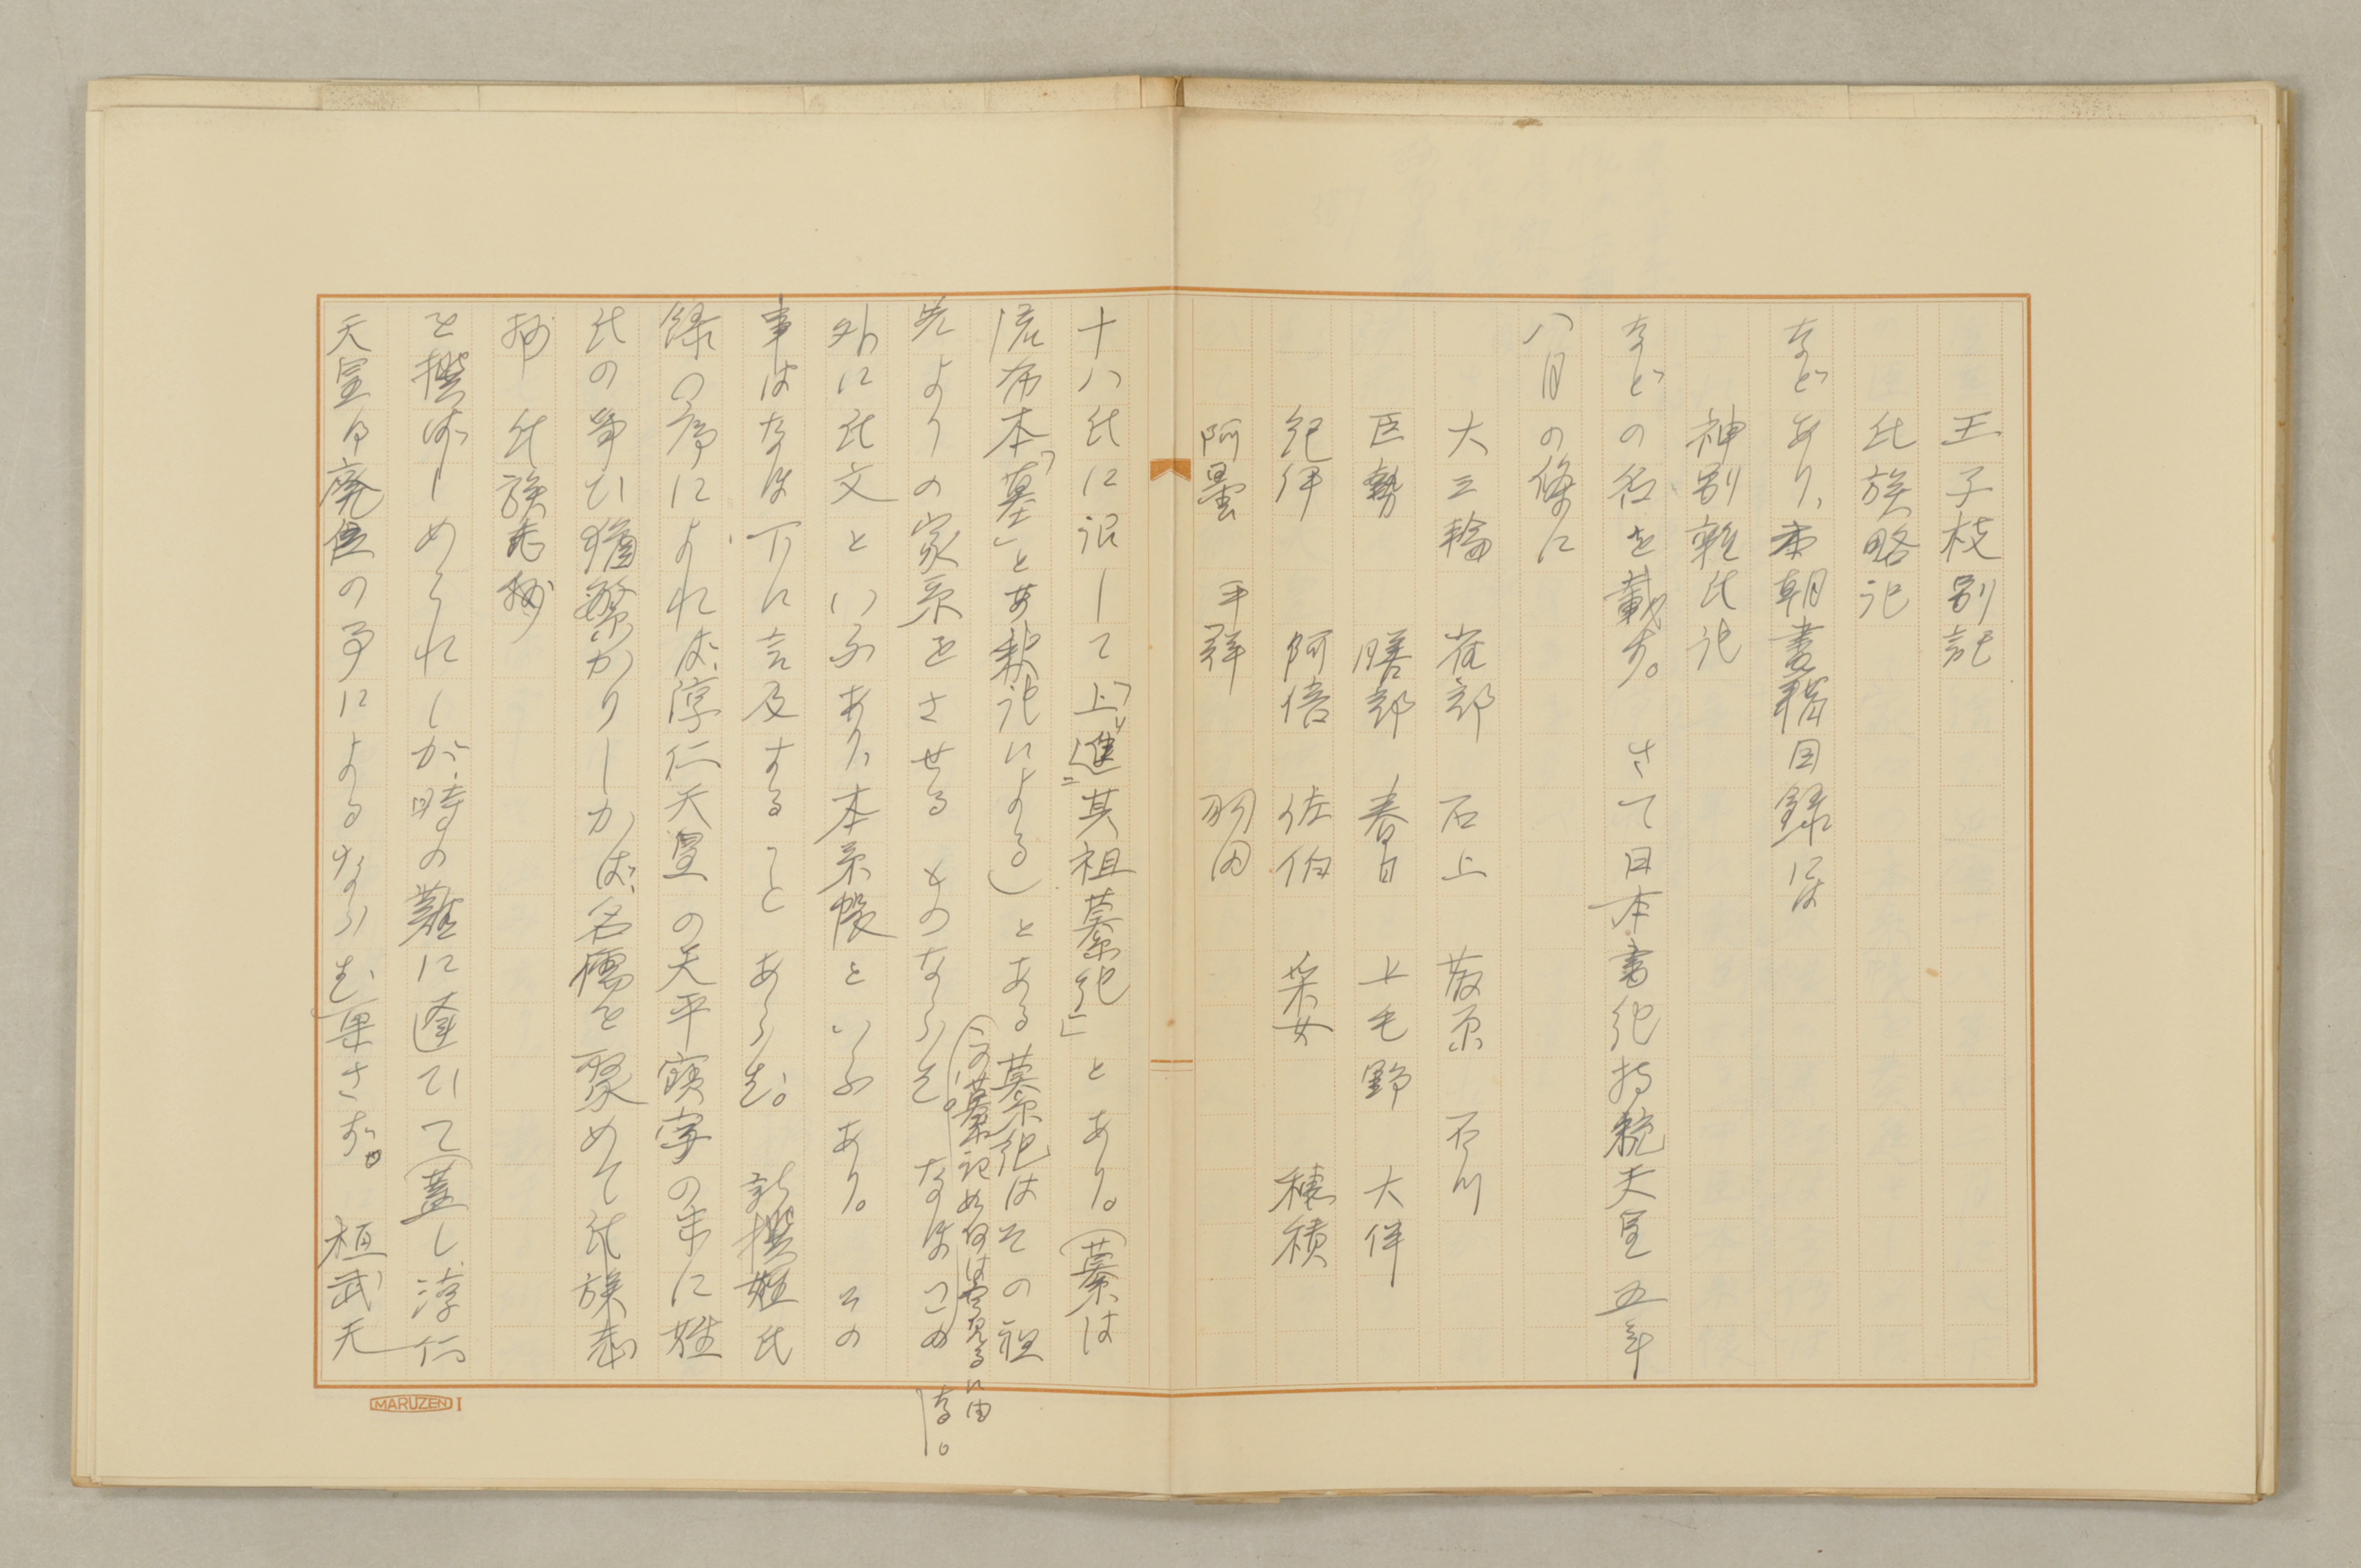 王子枝別記
氏族略記
などあり、本朝書籍目録には
神別雑氏記
などの名を載す。 さて日本書紀持統天皇五年
八月の條に
大三輪 雀部 石上 藤原 石川
巨勢 膳部 春日 上毛野 大伴
紀伊 阿倍 佐伯 采女 穂積
阿曇 平群 羽田
十八氏に詔して「上進其祖纂紀」とあり。(纂は
流布本「墓」とあ 釈記による)とある纂紀はその祖
先よりの家系をさせるものならむ。なほこの
(この纂記如何は 見るに由
なし。
外に氏文といふあり、本系帳といふあり。 その
事はなほ下に言及することあらむ。 新撰姓氏
録の序によれば、淳仁天皇の天平寶字の末に姓
氏の争ひ猶繁かりしかば、名儒を聚めて氏族志
抄 氏族志抄
を撰ばしめられしが、時の難に逢ひて(蓋し淳仁
天皇の廃位の事によるならむ)果さず。 桓武天
MARUZEN I